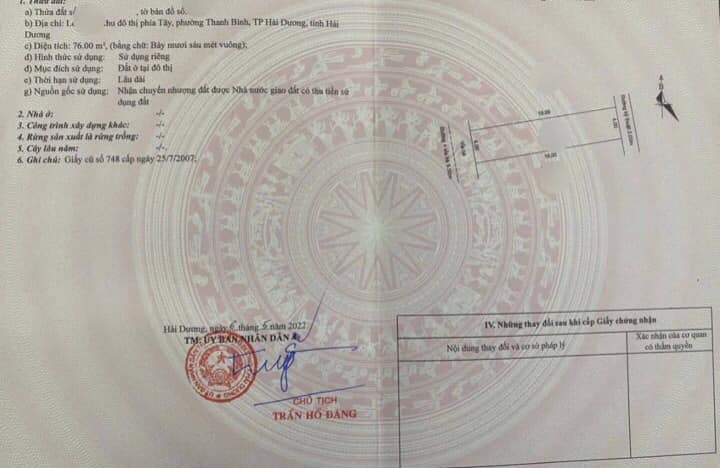 1. Thửa đất:
a) Thửa đất số , tờ bản đồ số,
b) Địa chỉ: hu đô thị phía Tây, phường Thanh Bình, TP Hải Dương, tỉnh Hải
Dương
c) Diện tích: 76.00 m², (bằng chữ: Bảy mươi sáu mét vuông);
d) Hình thức sử dụng: Sử dụng riêng
đ) Mục đích sử dụng: Đất ở tại đô thị
e) Thời hạn sử dụng: Lâu dài
g) Nguồn gốc sử dụng: Nhận chuyển nhượng đất được Nhà nước giao đất có thu tiền sử
dụng đất
2. Nhà ở: -/-
3. Công trình xây dựng khác: -/-
4. Rừng sản xuất là rừng trồng: -/-
5. Cây lâu năm: -/-
6. Ghi chú: Giấy cũ số 748 cấp ngày 25/7/2007;
B
19.00
4.00
4.00
19.00
Vỉa hè
Hải Dương, ngày 6 tháng 5 năm 2022
TM. ỦY BAN NHÂN DÂN
CHỦ TỊCH
TRẦN HỒ ĐĂNG
IV. Những thay đổi sau khi cấp Giấy chứng nhận
Nội dung thay đổi và cơ sở pháp lý
Xác nhận của cơ quan
có thẩm quyền